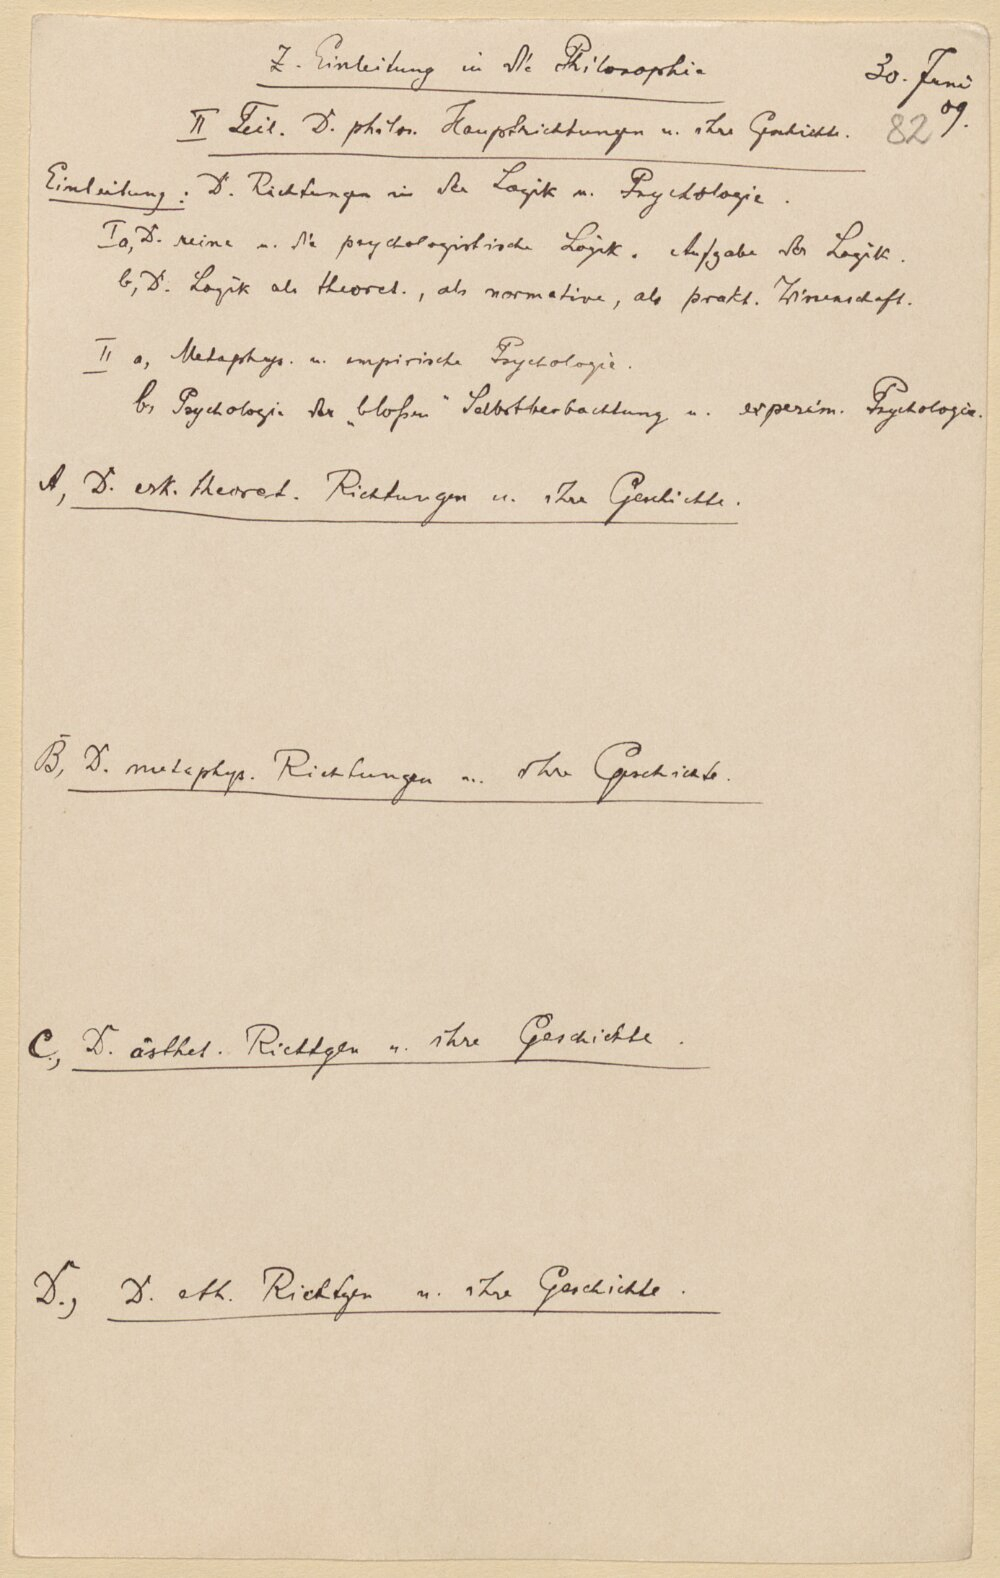 Z. Einleitung in die Philosophie
30. Juni 09.
II Teil. D. philos. Hauptrichtungen u. ihre Geschichte. 82
Einleitung: D. Richtungen in der Logik u. Psychologie.
I a, D. reine u. die psychologistische Logik. Aufgabe der Logik.
b, D. Logik als theoret., als normative, als prakt. Wissenschaft.
II a, Metaphys. u. empirische Psychologie.
b, Psychologie der „bloßen“ Selbstbeobachtung u. experim. Psychologie.
A, D. erk. theoret. Richtungen u. ihre Geschichte.
B, D. metaphys. Richtungen u. ihre Geschichte.
C., D. ästhet. Richtgen u. ihre Geschichte.
D., D. eth. Richtgen u. ihre Geschichte.